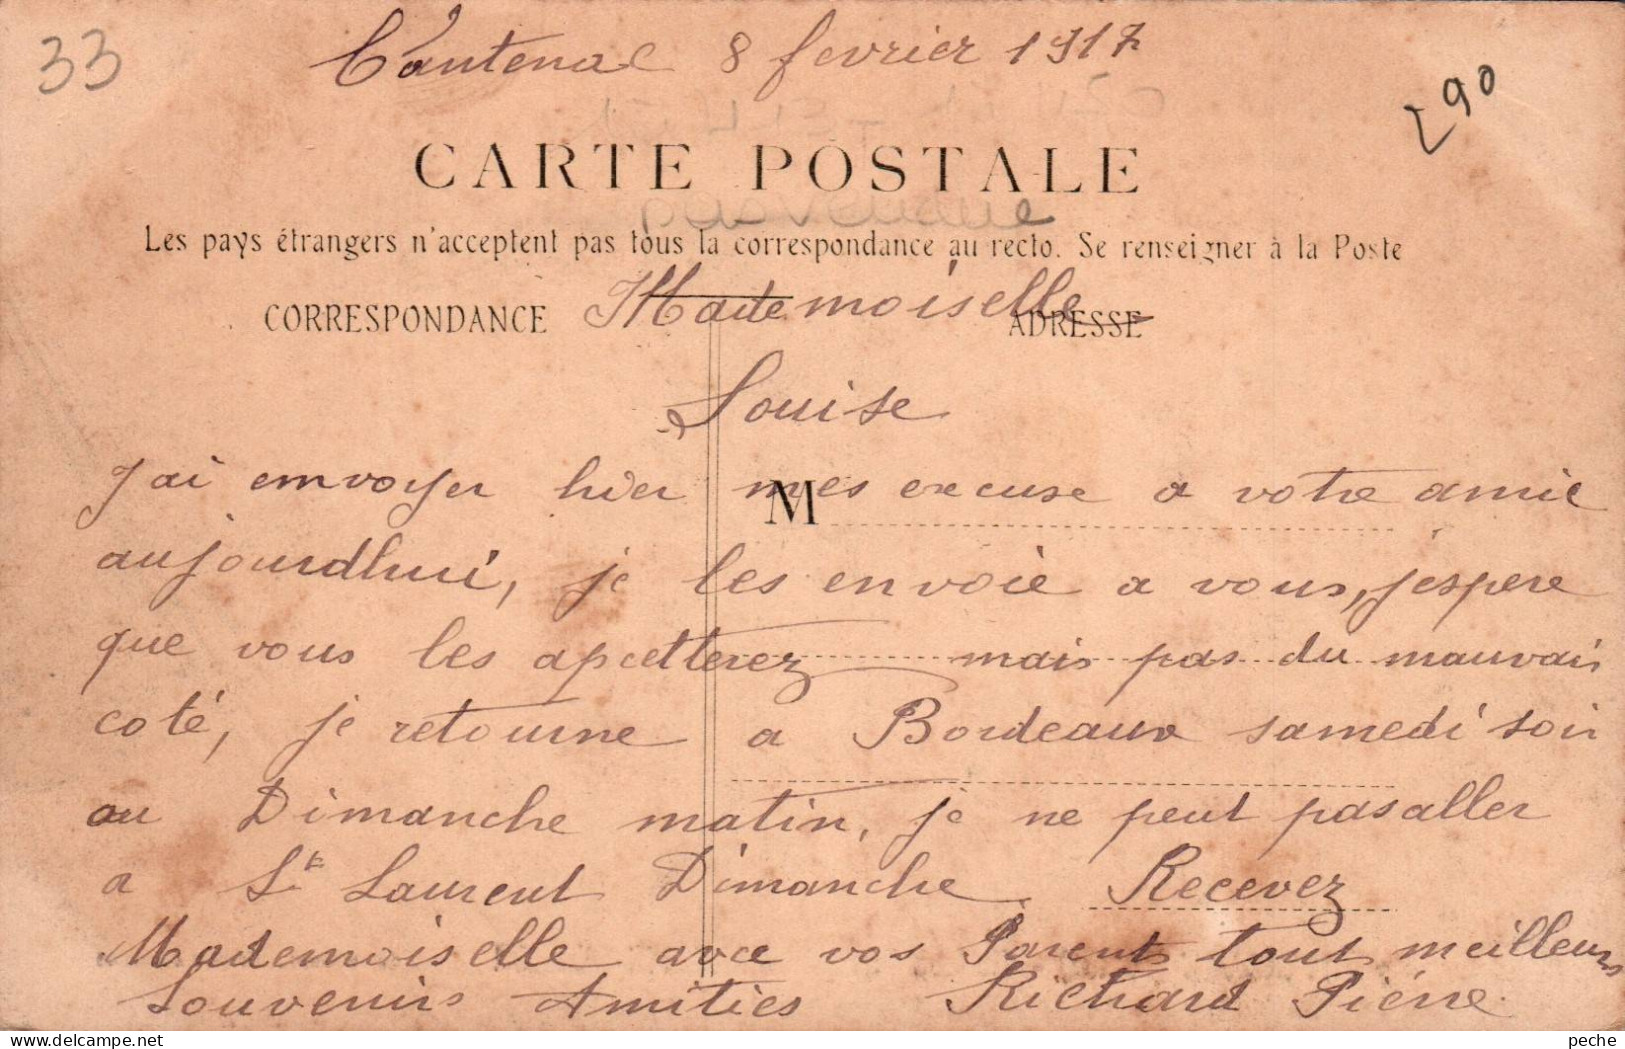 33
Cantenac 8 fevrier 1917
£90
CARTE POSTALE
Les pays étrangers n'acceptent pas tous la correspondance au recto. Se renseigner à la Poste
CORRESPONDANCE
ADRESSE
Mademoiselle
Louise
M
J'ai envoyer hier mes excuse a votre amie
aujourdhui, je les envoie a vous, j'espere
que vous les apcetterez mais pas du mauvais
coté, je retourne a Bordeaux samedi soir
ou Dimanche matin, je ne peut pas aller
a St Laurent Dimanche Recevez
Mademoiselle avce vos Parent tout meilleurs
Souvenirs Amities Richard Piérre.
peche